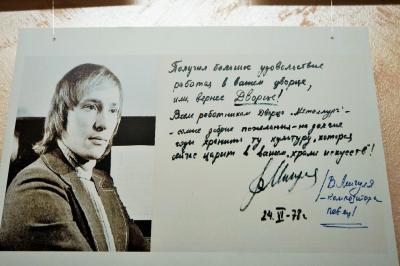 Получил большое удовольствие
работая в вашем дворце,
или, вернее Дворце!
Всем работникам Дворца "Металлург" -
- самые добрые пожелания - на долгие
годы хранить ту культуру, которая
сейчас царит в вашем "храме искусств"!
ВМигуля
24.VI-78г.
/В Мигуля
- композитор и
певец/